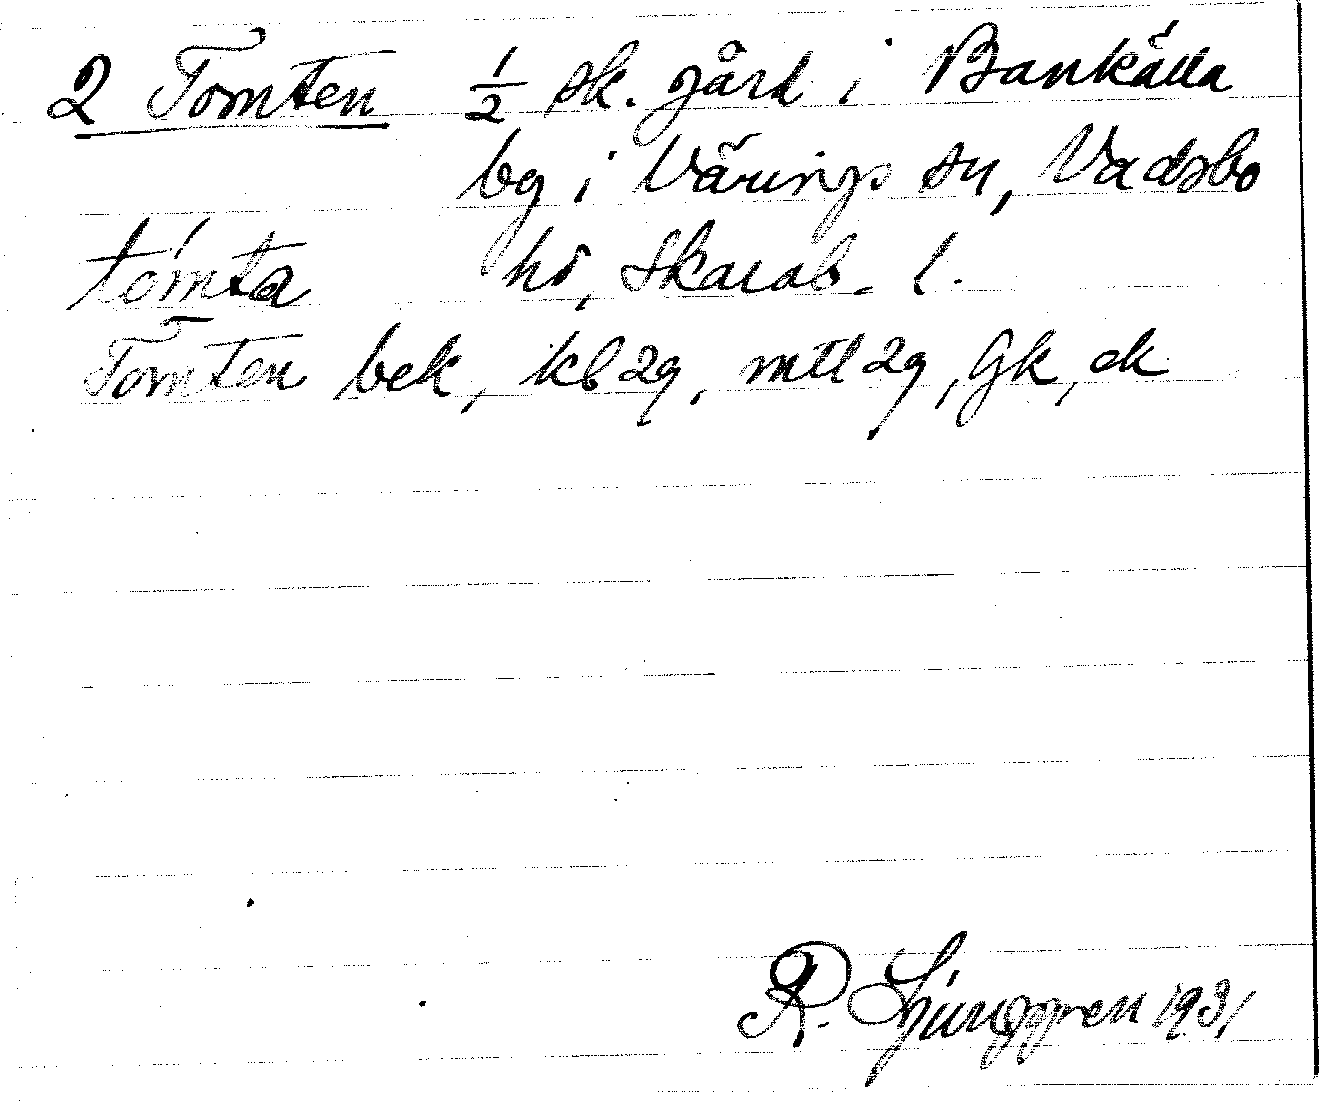 2 Tomten 1/2 sk. gård i Bankälla
by i Värings sn, Vadsbo
tómta hd, Skarab. l.
Tomten bek, kb 29, mtl 29, Gk, ek
R. Ljunggren 1931